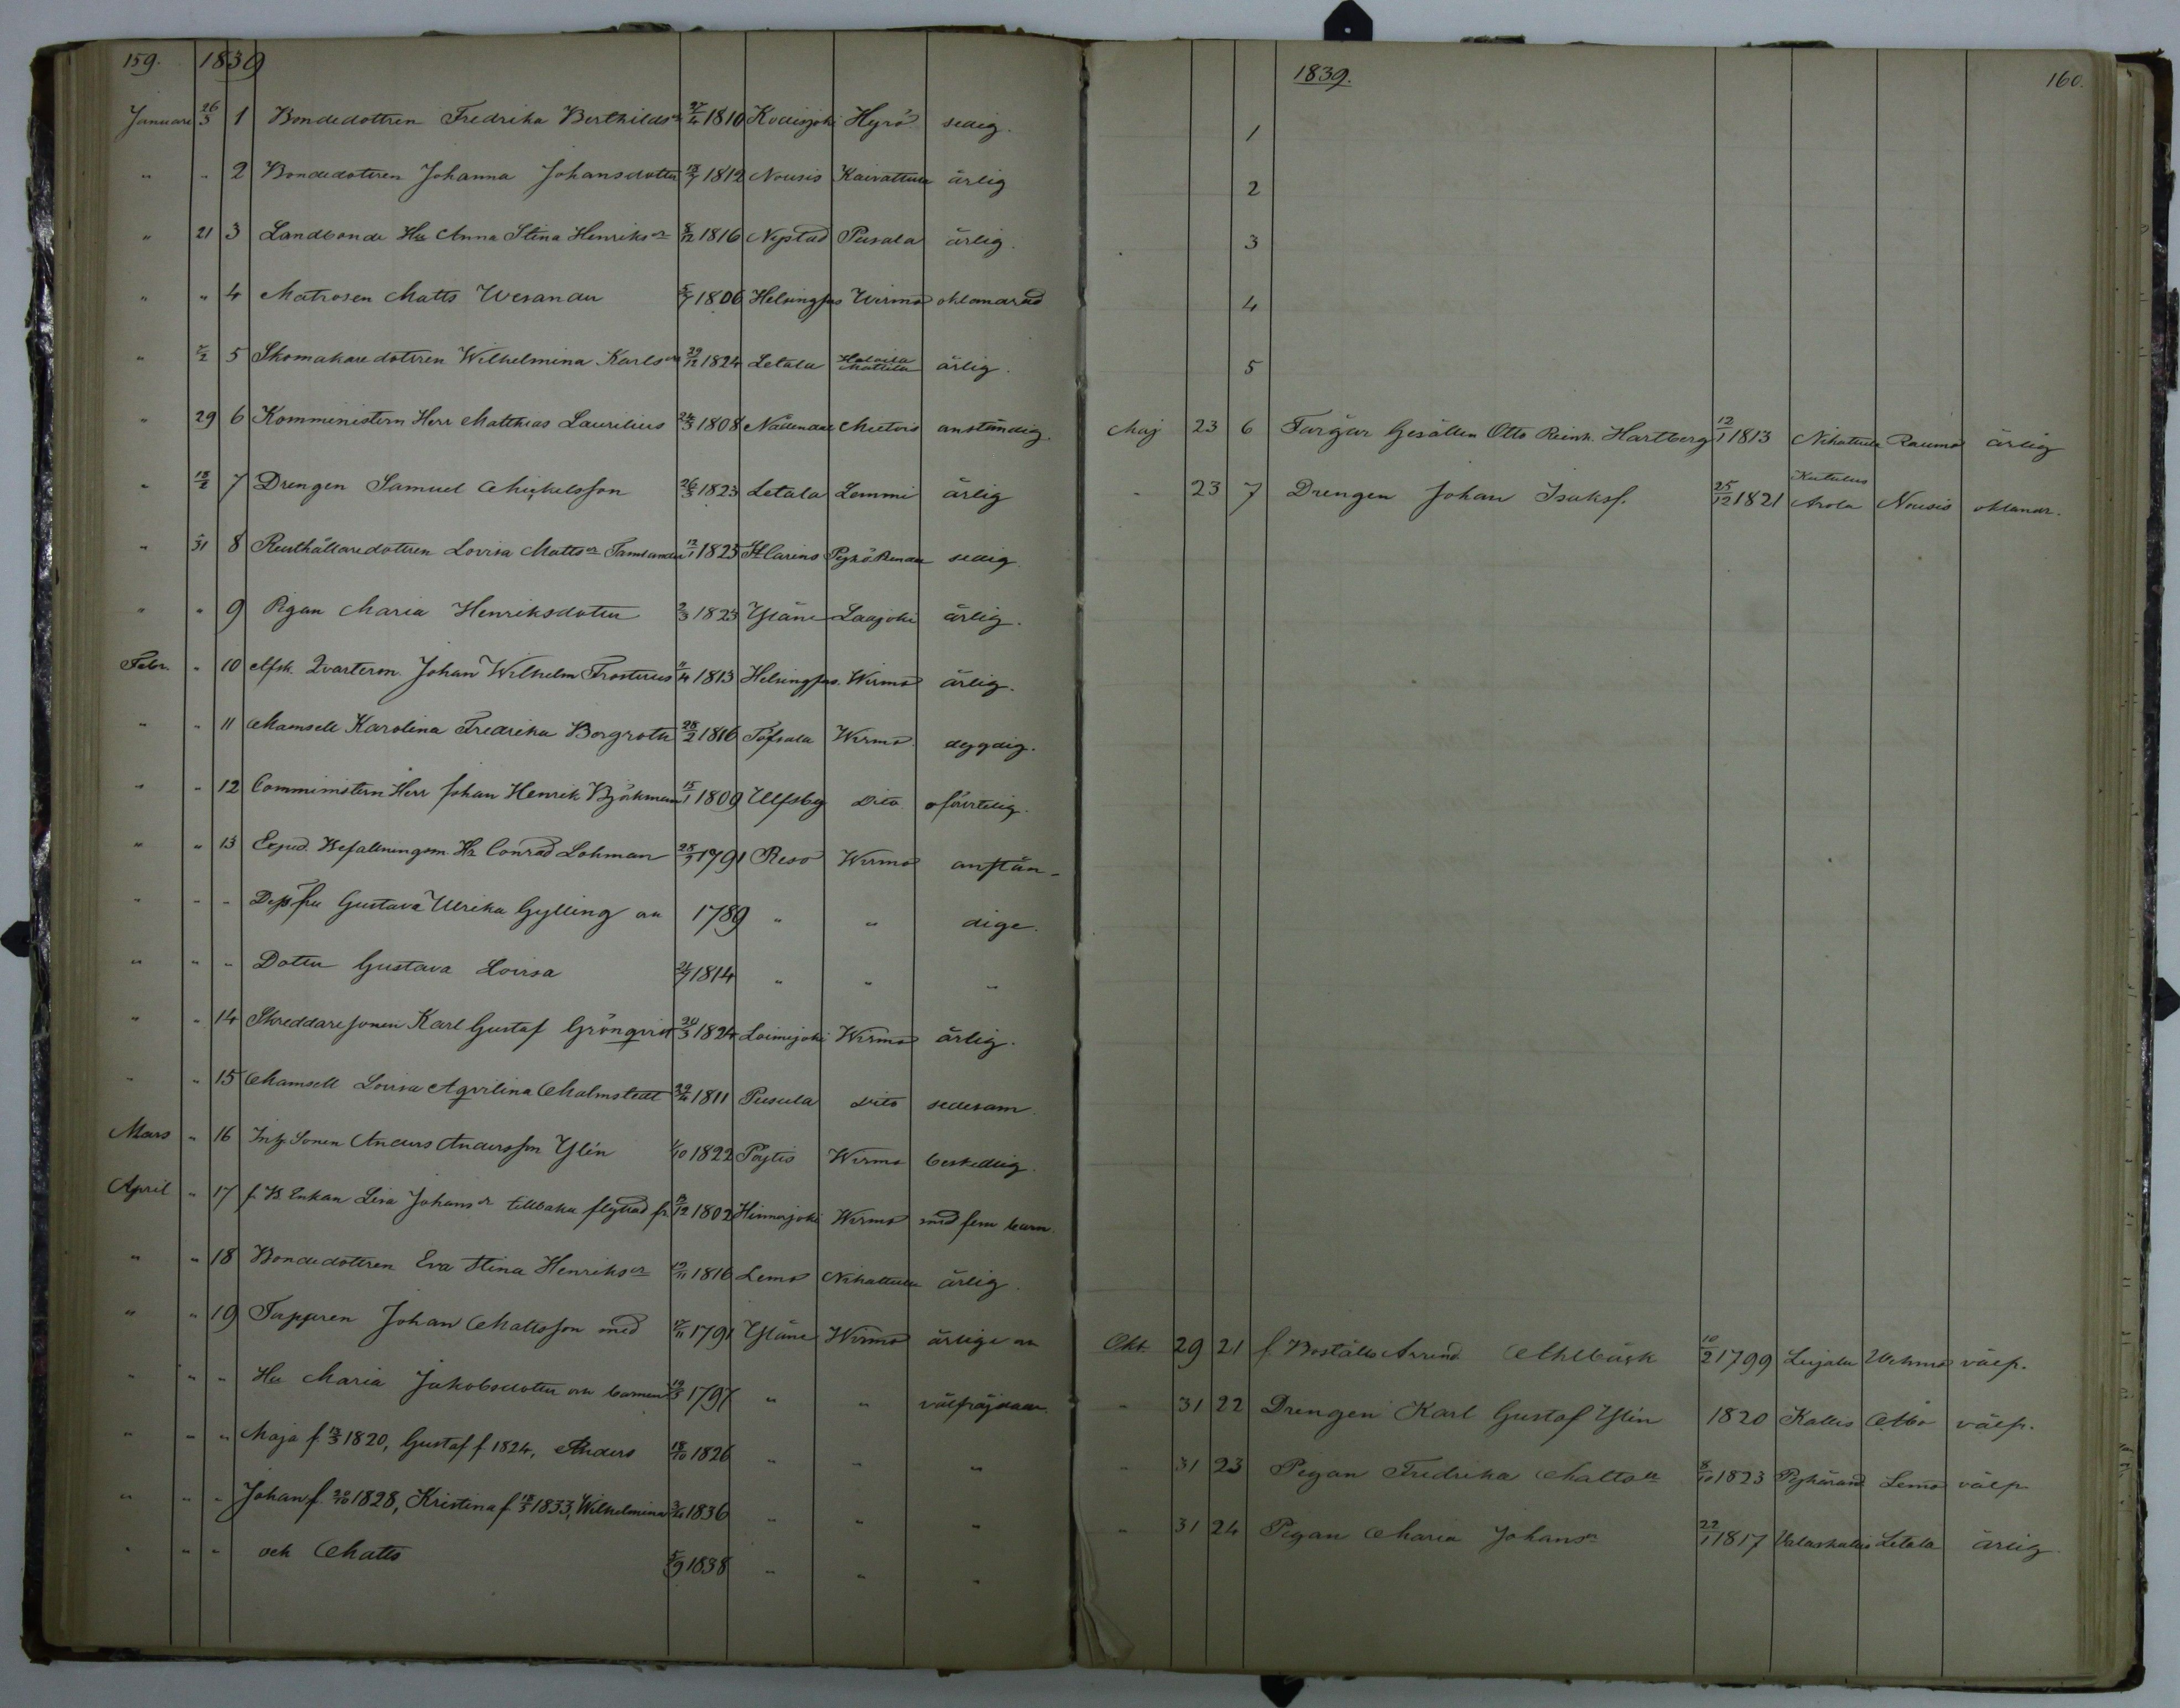 159. 1839
Januari 26/3 1 Bondedottren Fredrika Berthilds 27/4 1810 Kodisjoki Hyrö sedig.
" " 2 Bondedottren Johanna Johansdotter 18/7 1812 Nousis Kaivattula ärlig
" 21 3 Landbonde Hu Anna Stina Henriks 8/12 1816 Nystad Pusala ärlig.
" " 4 Matrosen Matts Wesander 5/7 1806 Helsingfors Wirmo oklandrad
" 5/2 5 Skomakaredottren Wilhelmina Karls 29/12 1824 Letala Mattila ärlig.
" 29 6 Komministern Herr Matthias Laurelius 24/3 1808 Nådendal Mietois anständig.
" 18/2 7 Drengen Samuel Michelsson 26/3 1823 Letala Lemmi ärlig
" 31 8 Rusthållaredottren Lovisa Matts Tamlander 12/1 1825 St Carins sedig
" " 9 Pigan Maria Henriksdotter 2/3 1823 Yläne Laajoki ärlig.
Febr. " 10 Afsk. Qvarterm. Johan Wilhelm Frosterus 11/4 1813 Helsingfors. Wirmo ärlig.
" " 11 Mamsell Karolina Fredrika Borgroth 28/2 1816 Töfsala Wirmo. dygdig.
" " 12 Comministern Herr Johan Henrik Björkman 15/1 1809 Ulfsby dito oförvitelig.
" " 13 Exped. Befallningsm. Hr Conrad Lohman 28/7 1791 Reso Wirmo anstän-
" " " Dess fru Gustava Ulrika Gylling 1789 " " dige.
" " " Dotter Gustava Lovisa 21/7 1814 " " "
" " 14 Skreddaresonen Karl Gustaf Grönqvist 20/3 1824 Loimijoki Wirmo ärlig.
" " 15 Mamsell Lovisa Aqvilina Malmstedt 29/4 1811 Pusula dito sedesam.
Mars " 16 Inh. Sonen Anders Andersson Ylén 1/10 1822 Pöytis Wirmo beskedlig.
April " 17 f. B. Enkan Lisa Johans dr tillbaka flyttad fr. 19/12 1802 Hinnerjoki Wirmo med fem barn.
" " 18 Bondedottren Eva Stina Henriks 19/11 1816 Lemo Nihattula ärlig.
" " 19 Johan Mattsson med 17/11 1791 Yläne Wirmo ärlige
" " " Hu Maria Jakobsdotter barnen 19/3 1797 " " välfräjdade.
" " " Maja f. 13/3 1820, Gustaf f 1824, Anders 18/10 1826 " " "
" " " Johan f. 20/10 1828, Kristina f. 18/3 1833, Wilhelmina 3/4 1836 " " "
" " " och Matts 5/9 1838 " " "
1839. 160.
1
2
3
4
5
Maj 23 6 Färgar Gesällen Otto Reinh. Hartberg 12/1 1813 Nihattula Raumo ärlig
" 23 7 Drengen Johan Isaksf. 25/12 1821 Arola Nousis oklandr.
Okt 29 21 f. Boställs Arrend. Ahlbäck 10/2 1799 Lujala Wehmo välf.
" 31 22 Drengen Karl Gustaf Ylén 1820 Kallis Åbo välf.
" 31 23 Pigan Fredrika Matts 8/10 1823 Lemo välf
" 31 24 Pigan Maria Johans 22/1 1817 Letala ärlig.